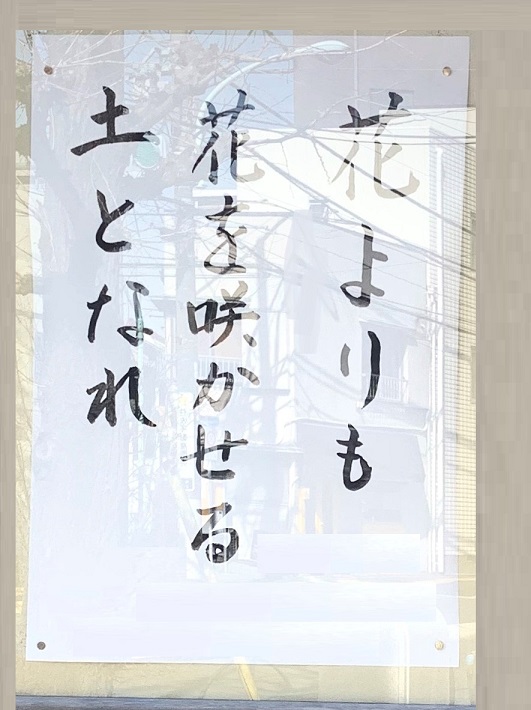 花よりも
花を咲かせる
土となれ